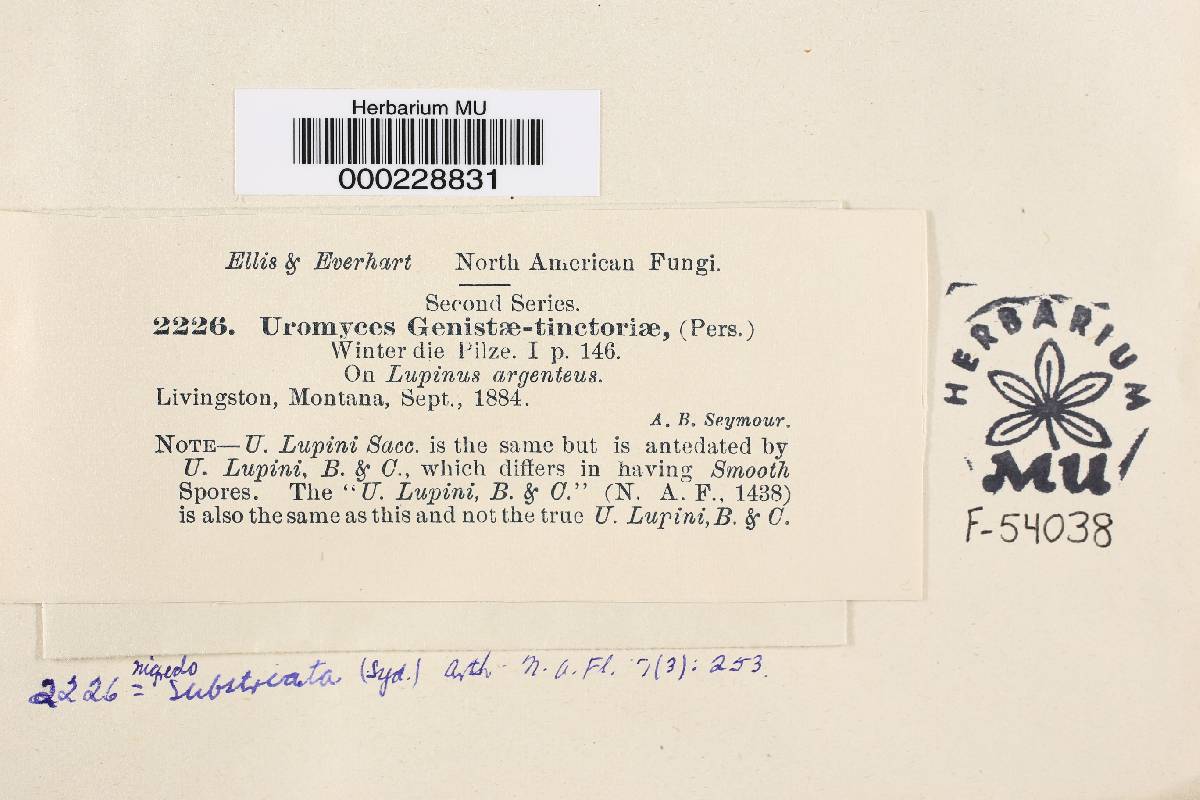 Herbarium MU
000228831
Ellis & Everhart North American Fungi.
Second Series.
2226. Uromyces Genistæ-tinctoriæ, (Pers.)
Winter die Pilze. I p. 146.
On Lupinus argenteus.
Livingston, Montana, Sept., 1884.
A. B. Seymour.
NOTE—U. Lupini Sacc. is the same but is antedated by
U. Lupini, B. & C., which differs in having Smooth
Spores. The "U. Lupini, B. & C." (N. A. F., 1438)
is also the same as this and not the true U. Lupini, B. & C.
HERBARIUM
MU
F-54038
nigredo
2226 = substriata (Syd.) Arth. N. A. Fl. 7(3): 253.